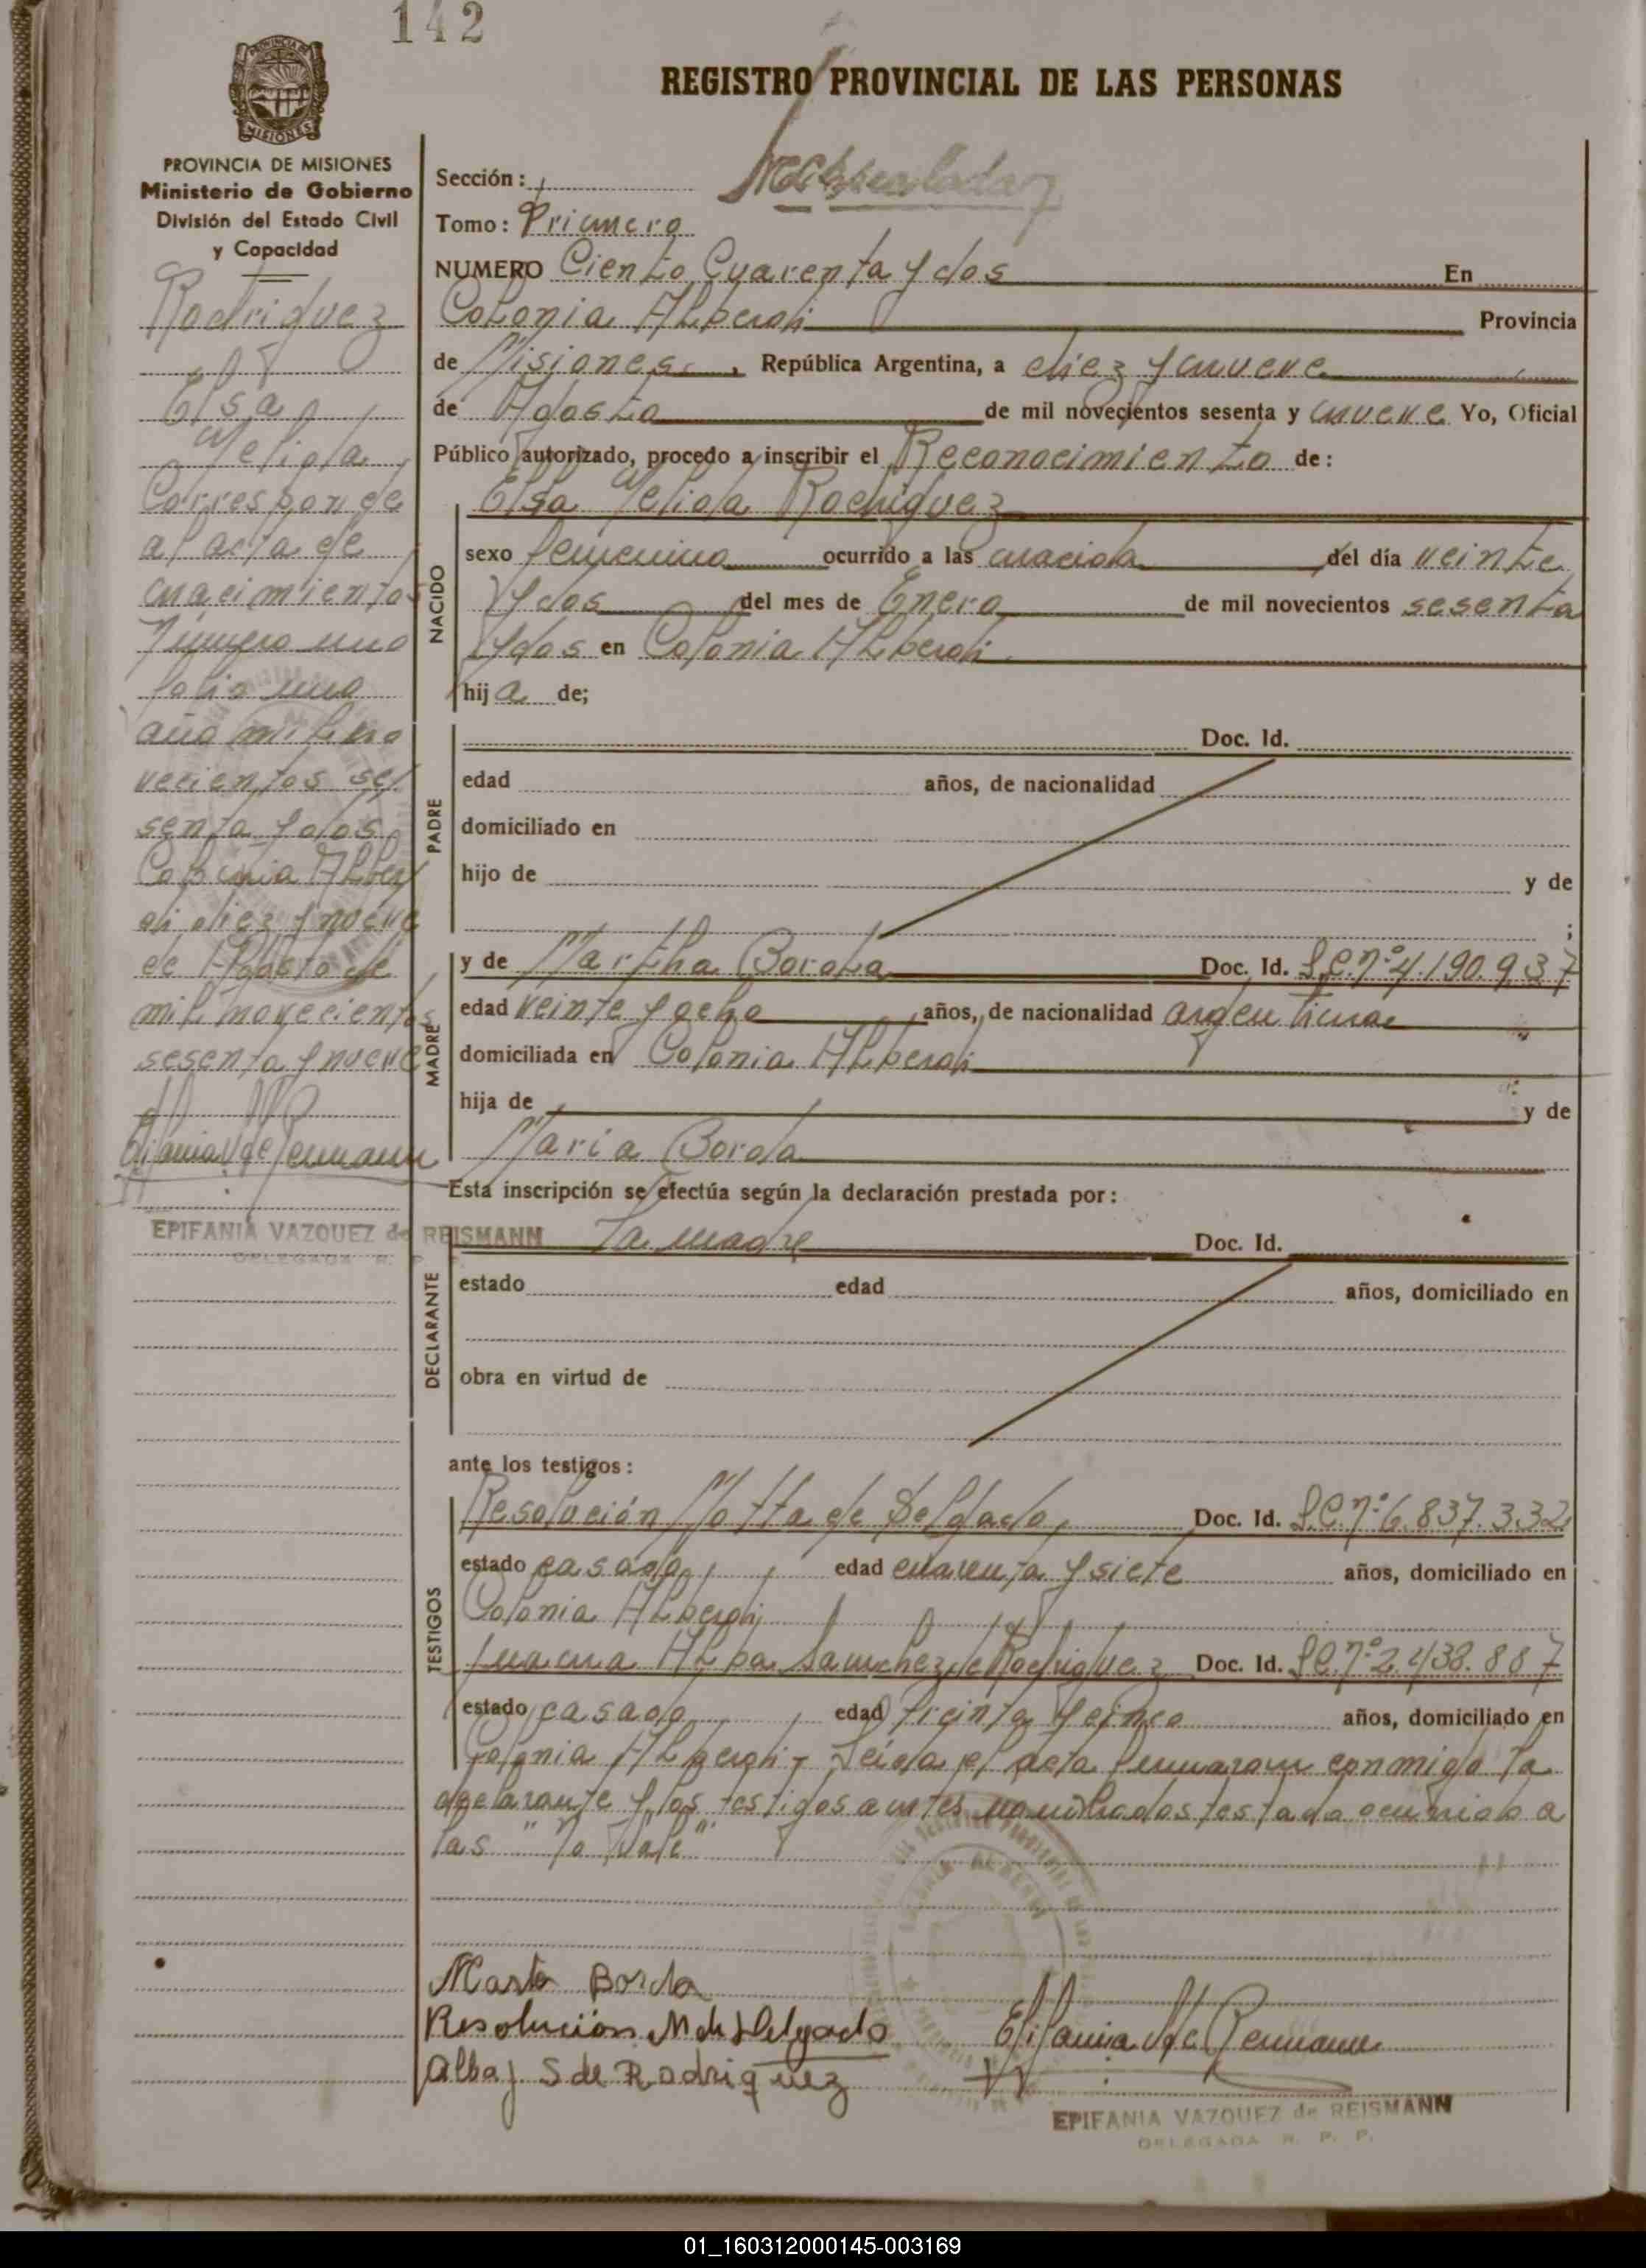 142
REGISTRO PROVINCIAL DE LAS PERSONAS
PROVINCIA DE MISIONES
PROVINCIA DE MISIONES
Ministerio de Gobierno
División del Estado Civil
y Capacidad
Rodriguez
Elsa
Corresponde
al acta de
nacimientos
Número uno
folio uno
año mil no
vecientos se
senta y dos
Colonia Alber
di diez y nueve
de Agosto de
mil novecientos
sesenta y nueve
Epifania V de Reismann
EPIFANIA VAZQUEZ de REISMANN
DELEGADA R. P. P.
Sección: 1
Tomo: Primero
NUMERO Ciento Cuarenta y dos En
Colonia Alberdi Provincia
de Misiones, República Argentina, a diez y nueve
de Agosto de mil novecientos sesenta y nueve Yo, Oficial
Público autorizado, procedo a inscribir el Reconocimiento de:
Elsa Rodriguez
NACIDO
sexo femenino ocurrido a las nacida del día veinte
y dos del mes de Enero de mil novecientos sesenta
y dos en Colonia Alberdi
hija de;
PADRE
Doc. Id.
edad años, de nacionalidad
domiciliado en
hijo de y de
;
MADRE
y de Martha Borda Doc. Id. L.C.nº 4.190.937
edad veinte y ocho años, de nacionalidad argentina
domiciliada en Colonia Alberdi
hija de y de
Maria Borda
Esta inscripción se efectúa según la declaración prestada por:
DECLARANTE
La madre Doc. Id.
estado edad años, domiciliado en
obra en virtud de
ante los testigos:
TESTIGOS
Resolución Motta de Delgado, Doc. Id. L.C.nº 6.837.332
estado casada, edad cuarenta y siete años, domiciliado en
Colonia Alberdi
Juana Alba Sanchez de Rodriguez Doc. Id. L.C.nº 2.438.887
estado casada, edad treinta y cinco años, domiciliado en
Colonia Alberdi - Leida el acta firmaron conmigo la
declarante y los testigos antes nombrados testado ocurrido a
las "No Vale".
Marta Borda
Resolución M de Delgado
Alba J S de Rodriguez
Epifania V de Reismann
EPIFANIA VAZQUEZ de REISMANN
DELEGADA R. P. P.
01_160312000145-003169